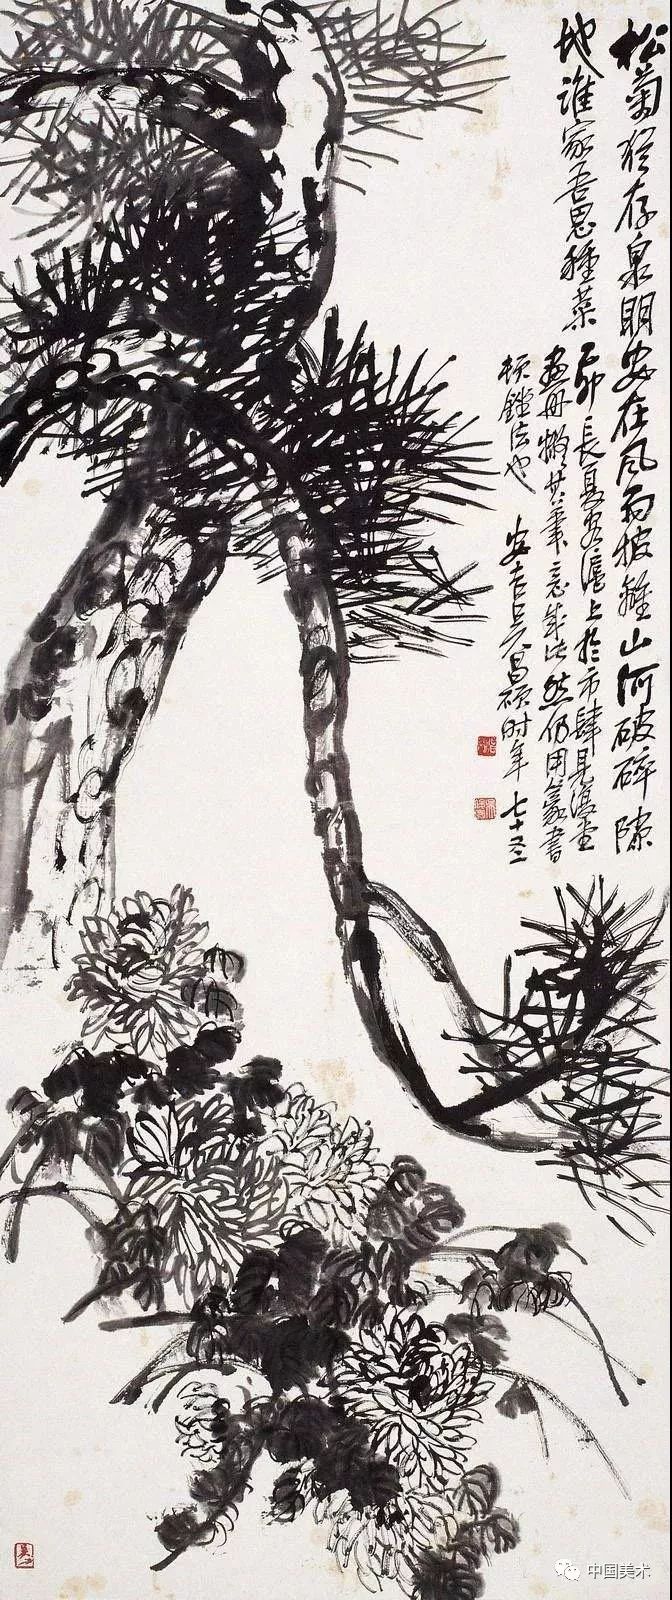 松菊猶存泉明安在風雨披離山河破碎隙
地誰家吾思種菜
乙卯長夏客滬上於市肆見復堂
畫冊橅其筆意成此然仍用篆書
頓法也 安吉吳昌碩時年七十又二
中国美术